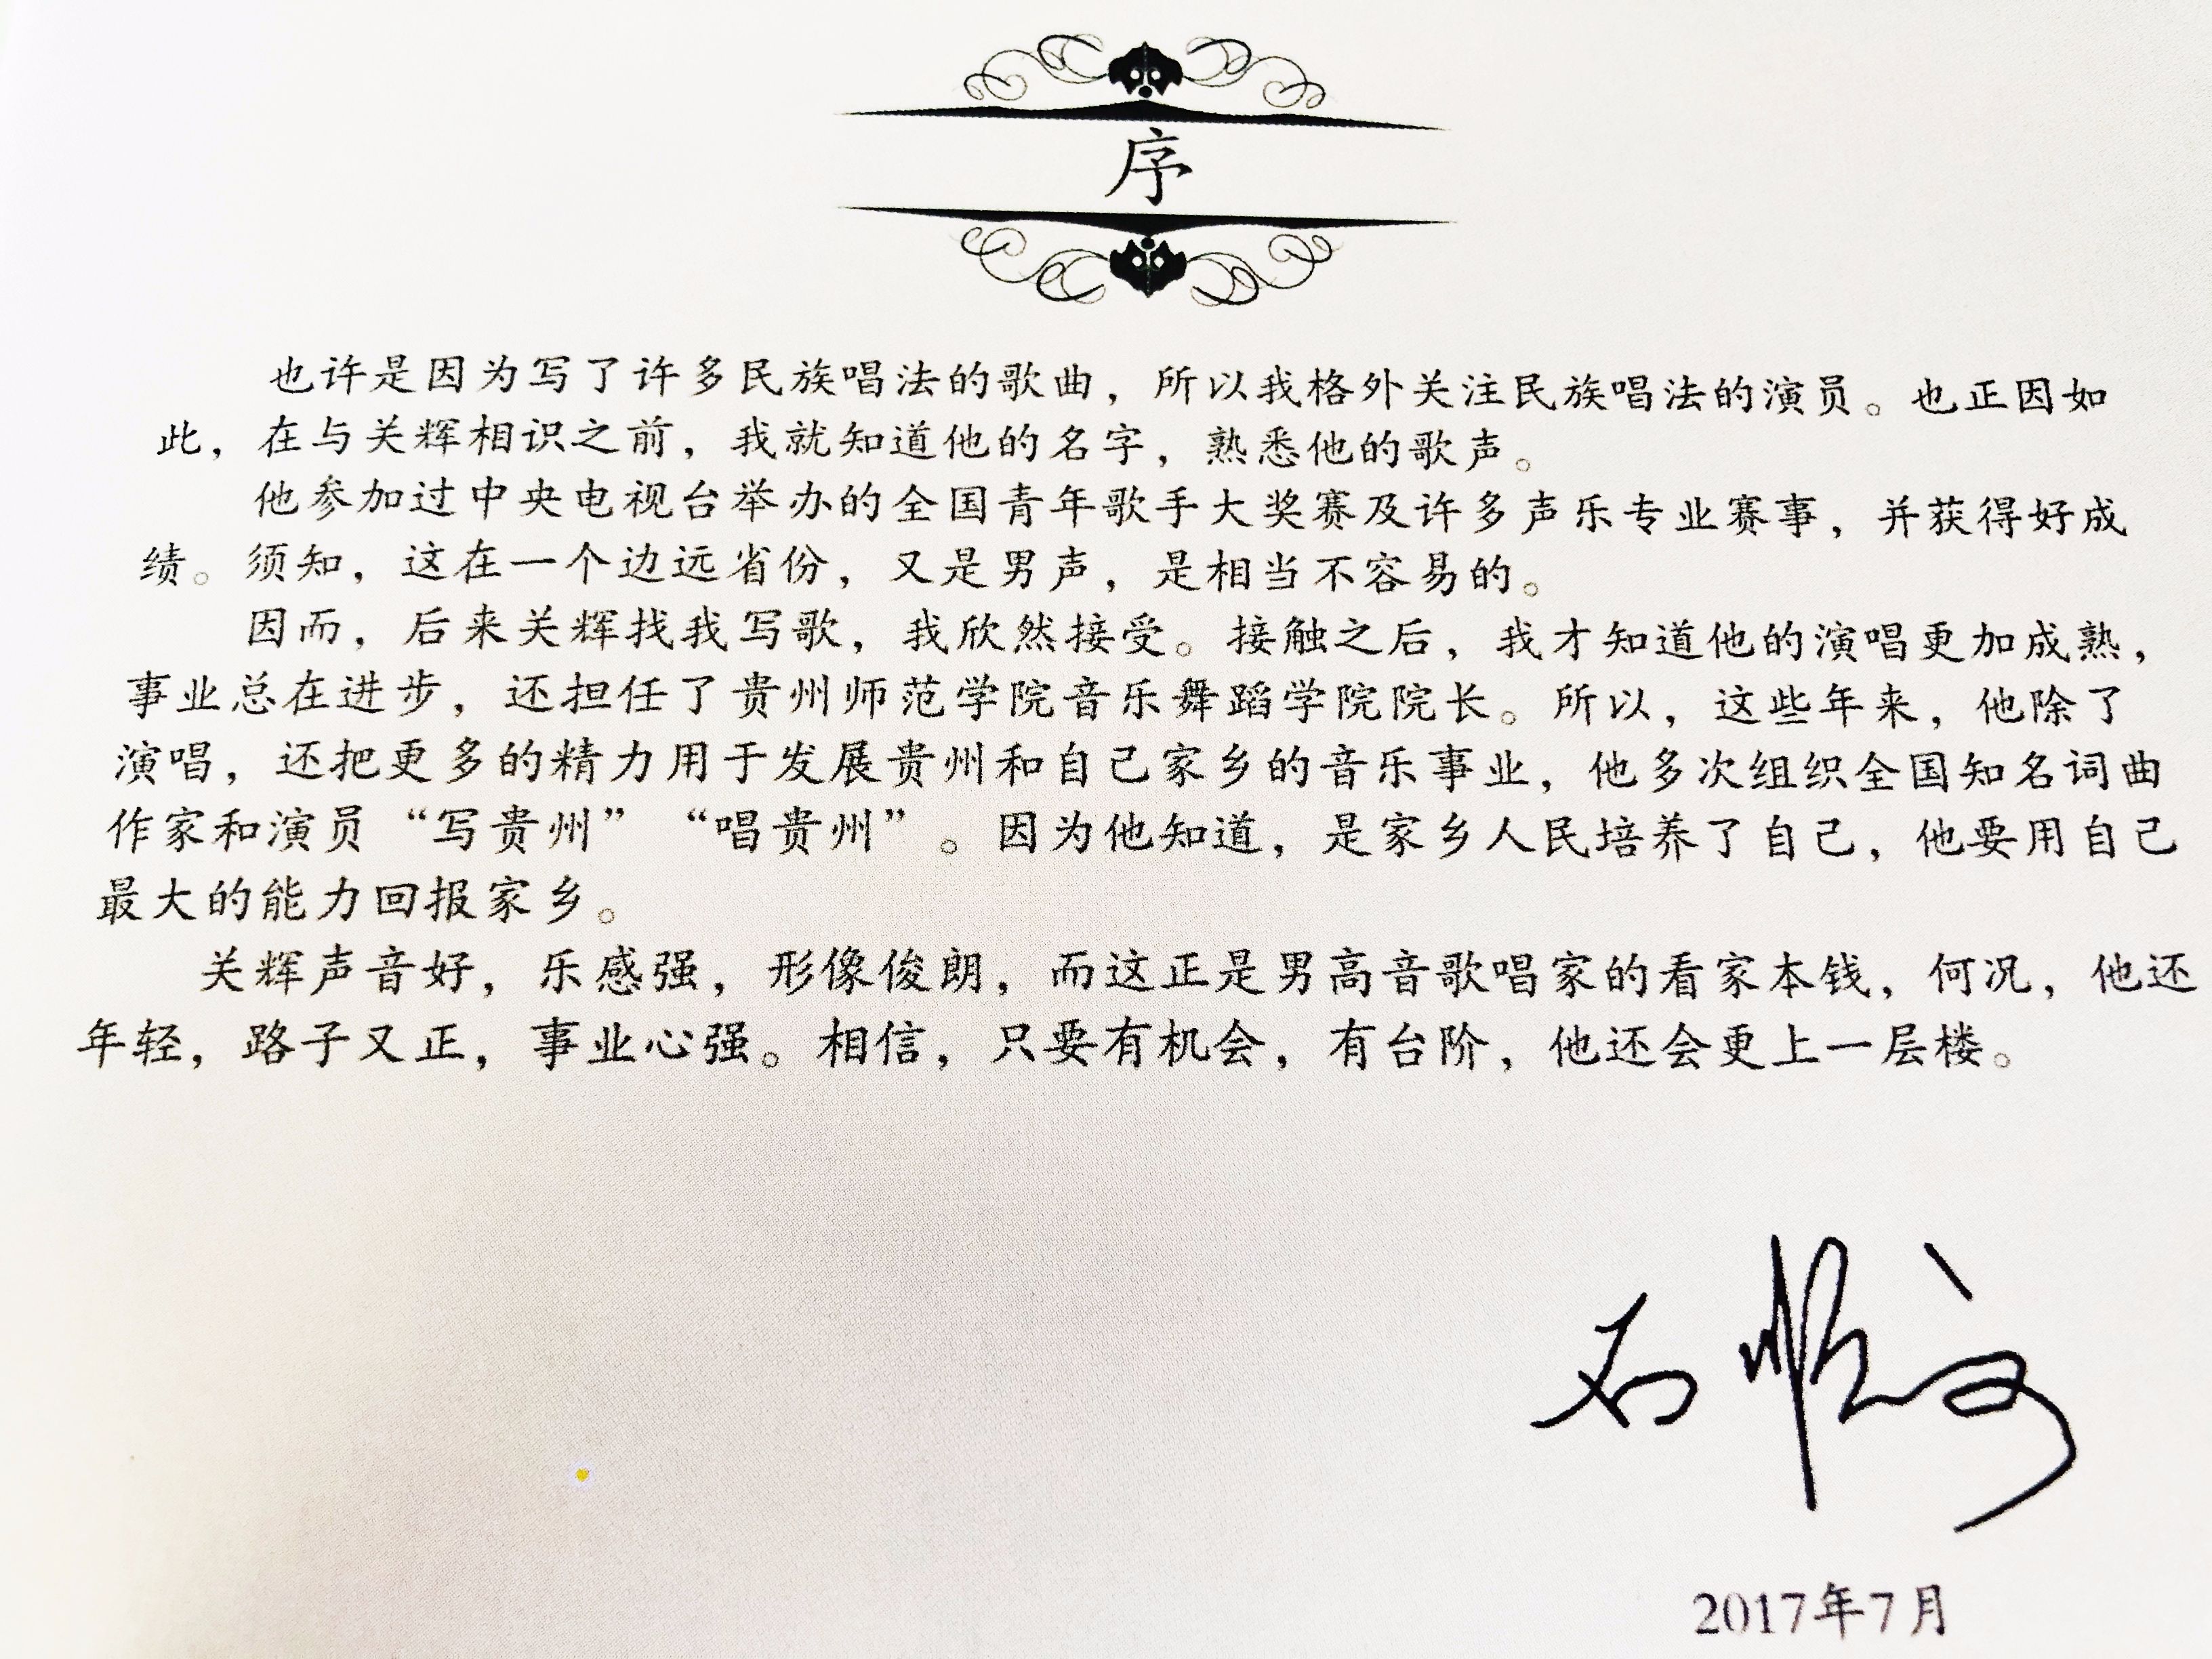 序
也许是因为写了许多民族唱法的歌曲，所以我格外关注民族唱法的演员。也正因如
此，在与关辉相识之前，我就知道他的名字，熟悉他的歌声。
他参加过中央电视台举办的全国青年歌手大奖赛及许多声乐专业赛事，并获得好成
绩。须知，这在一个边远省份，又是男声，是相当不容易的。
因而，后来关辉找我写歌，我欣然接受。接触之后，我才知道他的演唱更加成熟，
事业总在进步，还担任了贵州师范学院音乐舞蹈学院院长。所以，这些年来，他除了
演唱，还把更多的精力用于发展贵州和自己家乡的音乐事业，他多次组织全国知名词曲
作家和演员“写贵州”“唱贵州”。因为他知道，是家乡人民培养了自己，他要用自己
最大的能力回报家乡。
关辉声音好，乐感强，形像俊朗，而这正是男高音歌唱家的看家本钱，何况，他还
年轻，路子又正，事业心强。相信，只要有机会，有台阶，他还会更上一层楼。
石顺义
2017年7月